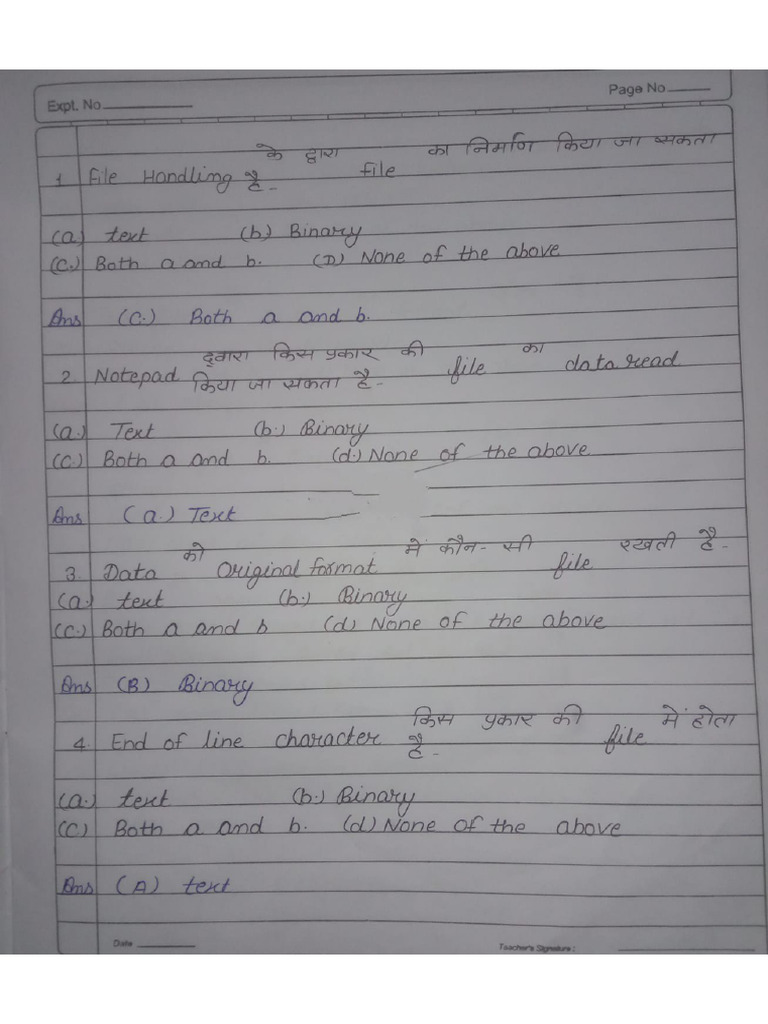 Expt. No
Page No
1. File Handling के द्वारा file का निर्माण किया जा सकता
है-
(a.) text (b.) Binary
(c.) Both a and b. (D) None of the above
Ans (C.) Both a and b.
2. Notepad द्वारा किस प्रकार की file का data read
किया जा सकता है-
(a.) Text (b.) Binary
(c.) Both a and b. (d.) None of the above
Ans (a.) Text
3. Data को Original format में कौन-सी file रखती है-
(a.) text (b.) Binary
(c.) Both a and b (d) None of the above
Ans (B) Binary
4. End of line character किस प्रकार की file में होता
है-
(a.) text (b.) Binary
(c) Both a and b. (d) None of the above
Ans (A) text
Date
Teacher's Signature :